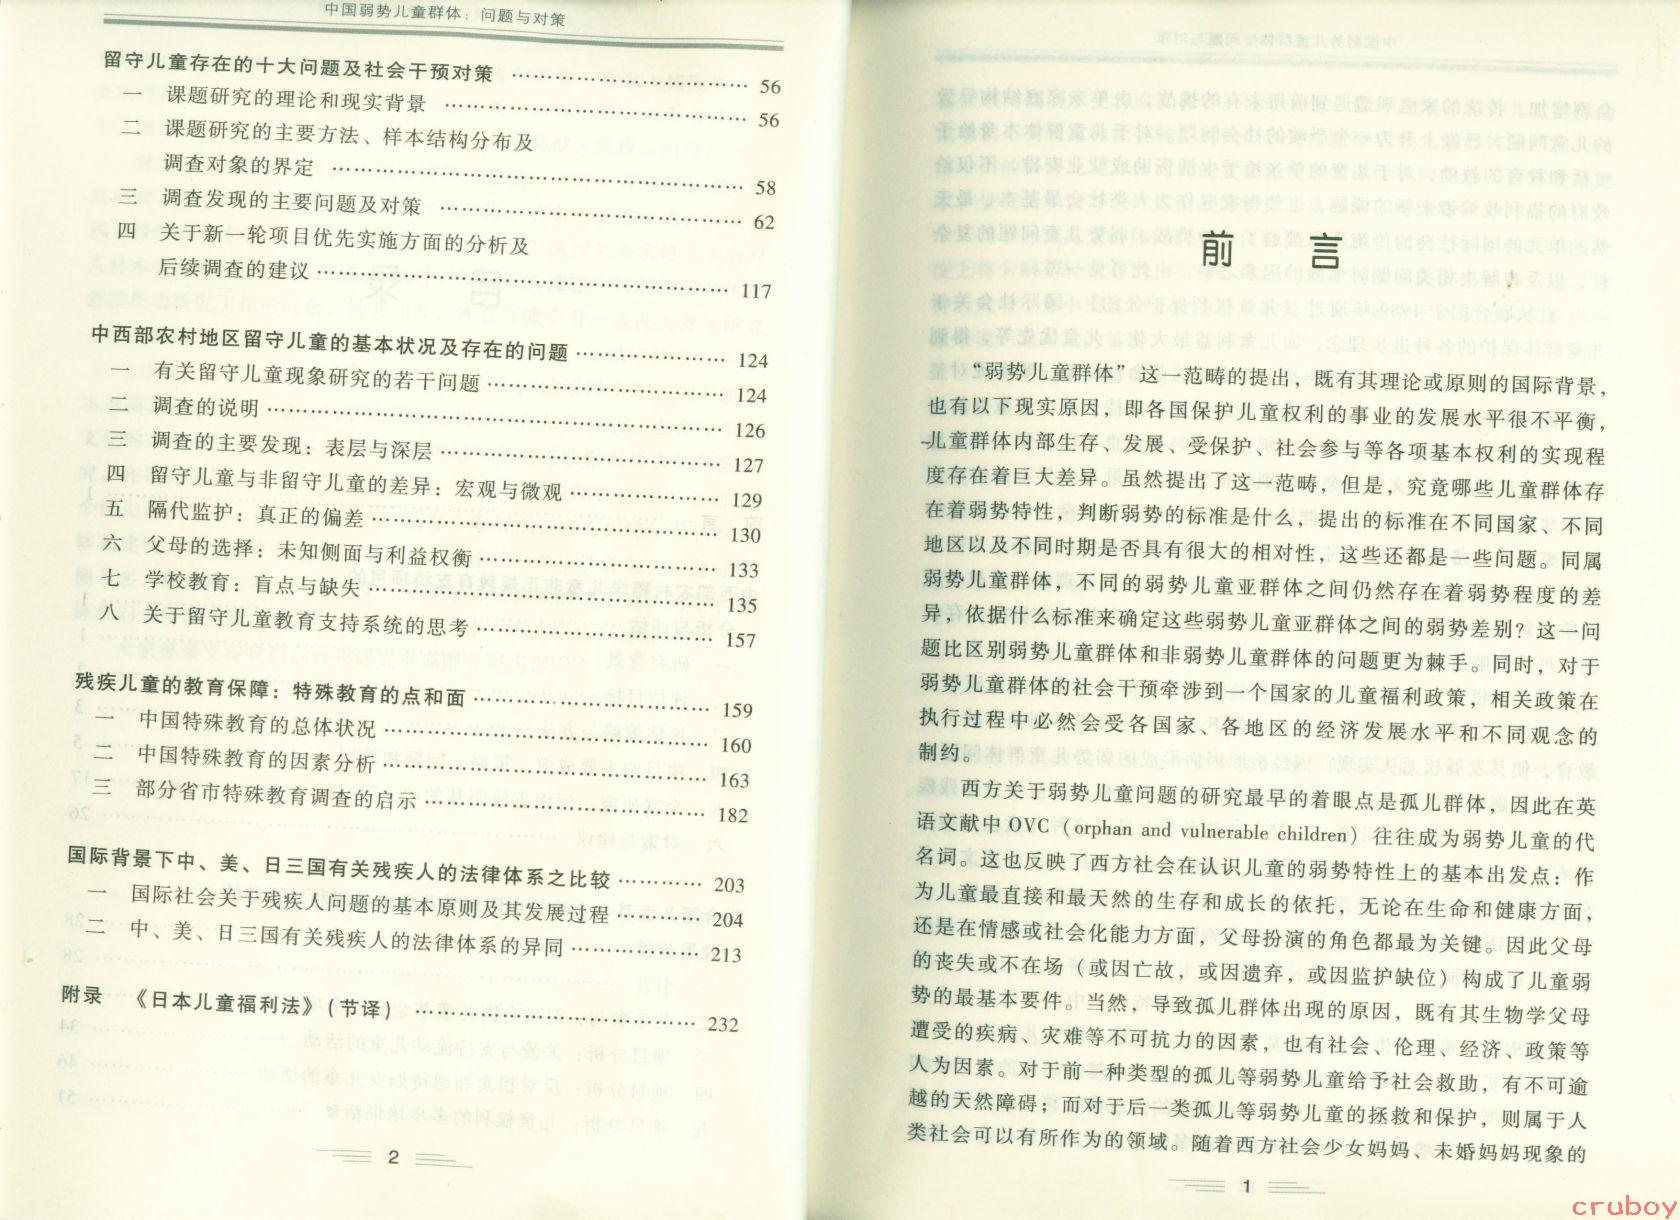 中国弱势儿童群体：问题与对策
留守儿童存在的十大问题及社会干预对策 …… 56
一 课题研究的理论和现实背景 …… 56
二 课题研究的主要方法、样本结构分布及
调查对象的界定 …… 58
三 调查发现的主要问题及对策 …… 62
四 关于新一轮项目优先实施方面的分析及
后续调查的建议 …… 117
中西部农村地区留守儿童的基本状况及存在的问题 …… 124
一 有关留守儿童现象研究的若干问题 …… 124
二 调查的说明 …… 126
三 调查的主要发现：表层与深层 …… 127
四 留守儿童与非留守儿童的差异：宏观与微观 …… 129
五 隔代监护：真正的偏差 …… 130
六 父母的选择：未知侧面与利益权衡 …… 133
七 学校教育：盲点与缺失 …… 135
八 关于留守儿童教育支持系统的思考 …… 157
残疾儿童的教育保障：特殊教育的点和面 …… 159
一 中国特殊教育的总体状况 …… 160
二 中国特殊教育的因素分析 …… 163
三 部分省市特殊教育调查的启示 …… 182
国际背景下中、美、日三国有关残疾人的法律体系之比较 …… 203
一 国际社会关于残疾人问题的基本原则及其发展过程 …… 204
二 中、美、日三国有关残疾人的法律体系的异同 …… 213
附录 《日本儿童福利法》（节译） …… 232
2
前 言
“弱势儿童群体”这一范畴的提出，既有其理论或原则的国际背景，
也有以下现实原因，即各国保护儿童权利的事业的发展水平很不平衡，
儿童群体内部生存、发展、受保护、社会参与等各项基本权利的实现程
度存在着巨大差异。虽然提出了这一范畴，但是，究竟哪些儿童群体存
在着弱势特性，判断弱势的标准是什么，提出的标准在不同国家、不同
地区以及不同时期是否具有很大的相对性，这些还都是一些问题。同属
弱势儿童群体，不同的弱势儿童亚群体之间仍然存在着弱势程度的差
异，依据什么标准来确定这些弱势儿童亚群体之间的弱势差别？这一问
题比区别弱势儿童群体和非弱势儿童群体的问题更为棘手。同时，对于
弱势儿童群体的社会干预牵涉到一个国家的儿童福利政策，相关政策在
执行过程中必然会受各国家、各地区的经济发展水平和不同观念的
制约。
西方关于弱势儿童问题的研究最早的着眼点是孤儿群体，因此在英
语文献中OVC（orphan and vulnerable children）往往成为弱势儿童的代
名词。这也反映了西方社会在认识儿童的弱势特性上的基本出发点：作
为儿童最直接和最天然的生存和成长的依托，无论在生命和健康方面，
还是在情感或社会化能力方面，父母扮演的角色都最为关键。因此父母
的丧失或不在场（或因亡故，或因遗弃，或因监护缺位）构成了儿童弱
势的最基本要件。当然，导致孤儿群体出现的原因，既有其生物学父母
遭受的疾病、灾难等不可抗力的因素，也有社会、伦理、经济、政策等
人为因素。对于前一种类型的孤儿等弱势儿童给予社会救助，有不可逾
越的天然障碍；而对于后一类孤儿等弱势儿童的拯救和保护，则属于人
类社会可以有所作为的领域。随着西方社会少女妈妈、未婚妈妈现象的
1
cruboy